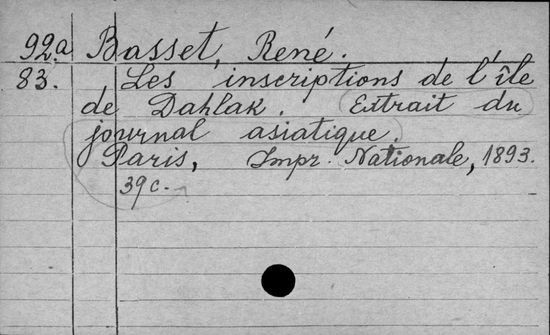 92.a Basset, René.
83. Les inscriptions de l'île
de Dahlak. Extrait du
journal asiatique.
Paris, Impr. Nationale, 1893.
39 c.